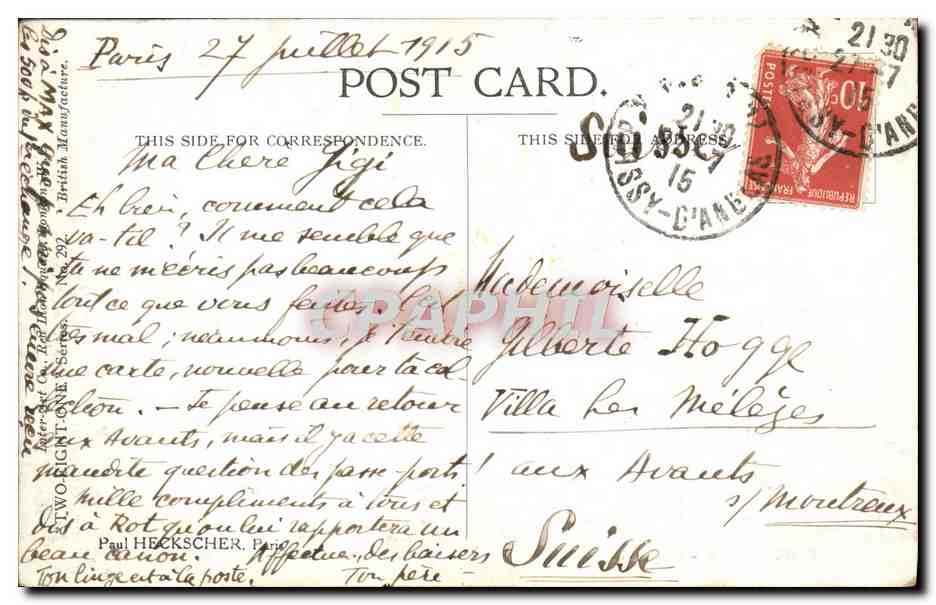 Paris 27 juillet 1915
POST CARD.
THIS SIDE FOR CORRESPONDENCE.
THIS SIDE FOR ADDRESS
Ma Chère Gigi
Eh bien, comment cela
va-t-il? Il me semble que
tu ne m'écris pas beaucoup
tout ce que vous faites. C'est
très mal; néanmoins, je t'envoie
une carte, nouvelle pour ta col-
lection. — Je pense au retour
aux Avants, mais il y a cette
maudite question des passe-ports!
Mille compliments à tous et
dis à Rot qu'on lui rapportera un
beau canon. Affectueux des baisers
Ton linge est à la poste. Ton père
Paul HECKSCHER, Paris
Dis à Max que
pas encore reçu
les 500 f du change!
Inter-Art Co., Red Lion
"TWO-RIGHT-ONE" Series. No. 292. British Manufacture.
Mademoiselle
Gilberte Hogge
Villa Les Mélèzes
aux Avants
s/ Montreux
Suisse
21 30
27-7
15
21 30
27-7
15
SSY-D'ANGLAS
SSY-D'ANG
10c
POSTES
REPUBLIQUE FRANÇAISE
CPAPHIL